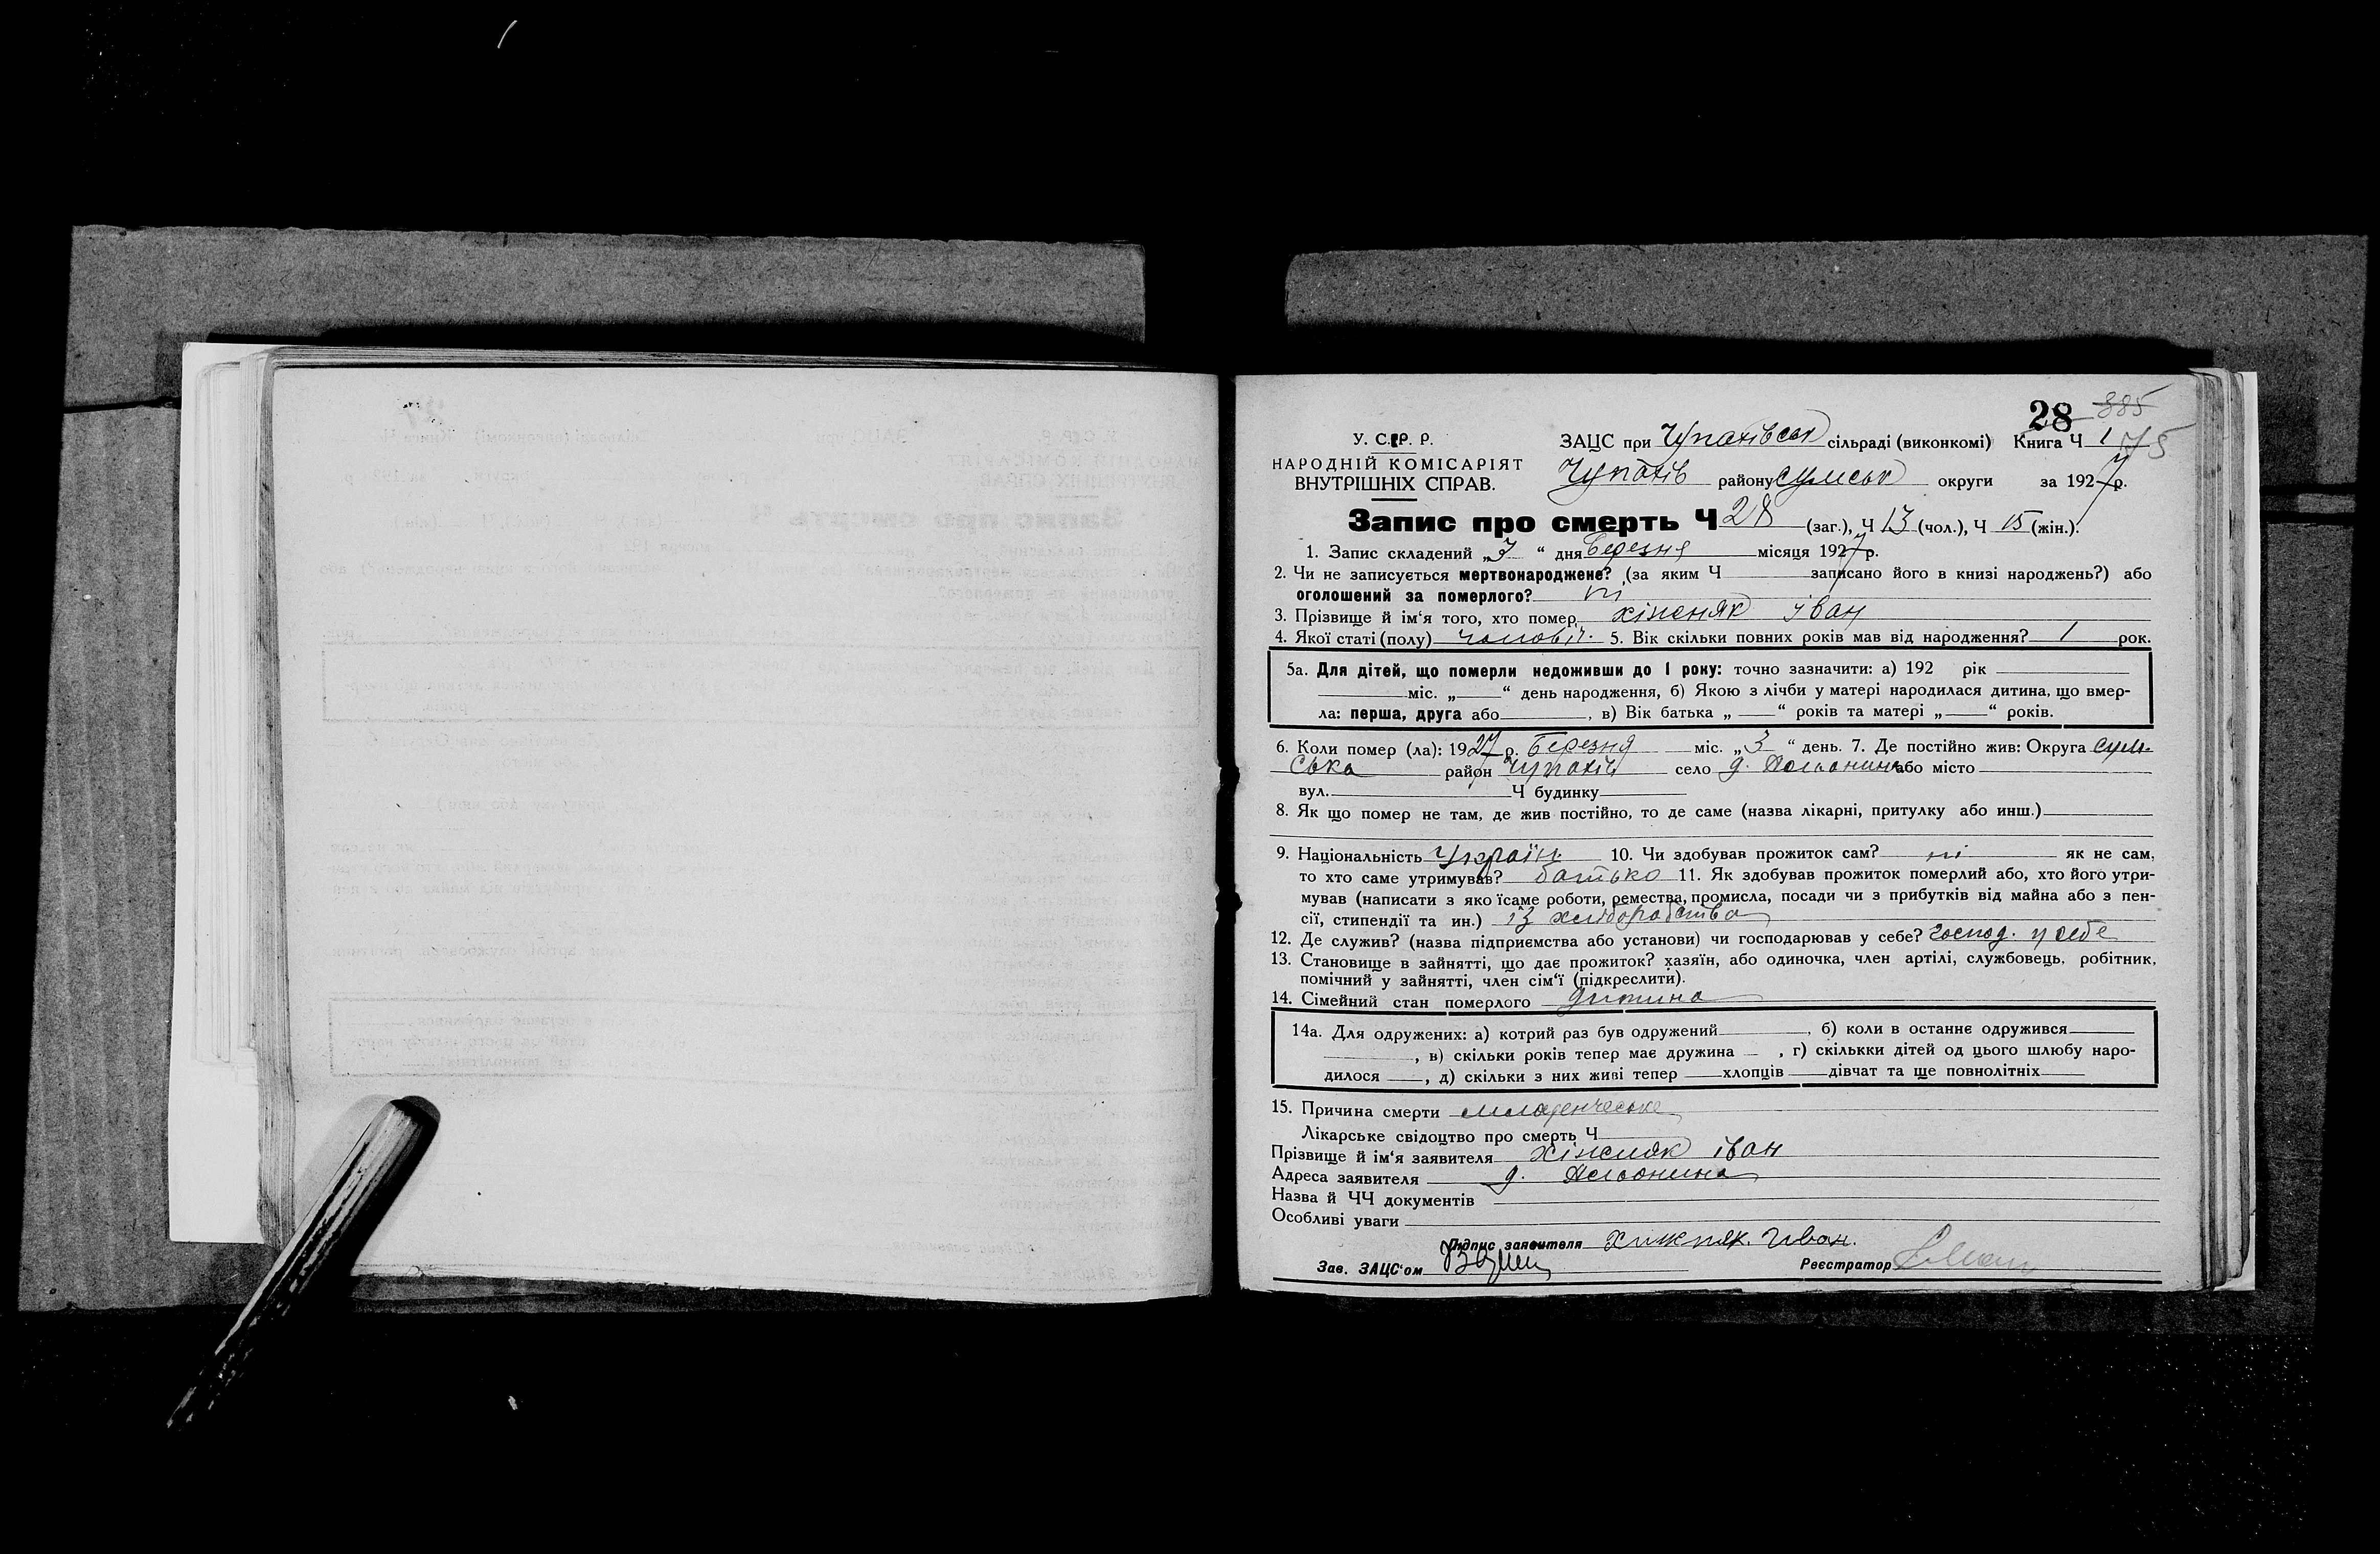 28 385
У. С.Р. Р. ЗАЦС при Чупахівськ сільраді (виконкомі) Книга Ч 1
75
НАРОДНІЙ КОМІСАРІЯТ
ВНУТРІШНІХ СПРАВ.
Чупахів району сумськ округи за 1927 р.
Запис про смерть Ч 28 (заг.), Ч 13 (чол.), Ч 15 (жін.).
1. Запис складений „7“ дня Березня місяця 1927 р.
2. Чи не записується мертвонароджене? (за яким Ч записано його в книзі народжень?) або
оголошений за померлого? ні
3. Прізвище й ім‘я того, хто помер іван
4. Якої статі (полу) чоловіч. 5. Вік скільки повних років мав від народження? 1 рок.
5а. Для дітей, що померли недоживши до 1 року: точно зазначити: а) 192 рік
міс. „ “ день народження, б) Якою з лічби у матері народилася дитина, що вмер-
ла: перша, друга або , в) Вік батька „ “ років та матері „ “ років.
6. Коли помер (ла): 1927 р. Березня міс. „3“ день. 7. Де постійно жив: Округа Сум-
ська район Чупахів село д. або місто
вул. Ч будинку
8. Як що помер не там, де жив постійно, то де саме (назва лікарні, притулку або инш.)
9. Національність Україн. 10. Чи здобував прожиток сам? ні як не сам,
то хто саме утримував? батько 11. Як здобував прожиток померлий або, хто його утри-
мував (написати з яко їсаме роботи, ремества, промисла, посади чи з прибутків від майна або з пен-
сії, стипендії та ин.) із хліборобства
12. Де служив? (назва підприємства або установи) чи господарював у себе? господ. у себе
13. Становище в зайнятті, що дає прожиток? хазяїн, або одиночка, член артілі, службовець, робітник,
помічний у зайнятті, член сім‘ї (підкреслити).
14. Сімейний стан померлого дитина
14а. Для одружених: а) котрий раз був одружений , б) коли в останнє одружився
, в) скільки років тепер має дружина , г) скількки дітей од цього шлюбу наро-
дилося , д) скільки з них живі тепер хлопців дівчат та ще повнолітніх
15. Причина смерти младенческе
Лікарське свідоцтво про смерть Ч
Прізвище й ім‘я заявителя іван
Адреса заявителя д.
Назва й ЧЧ документів
Особливі уваги
Підпис заявителя Хижняк. Иван.
Зав. ЗАЦС‘ом Реєстратор